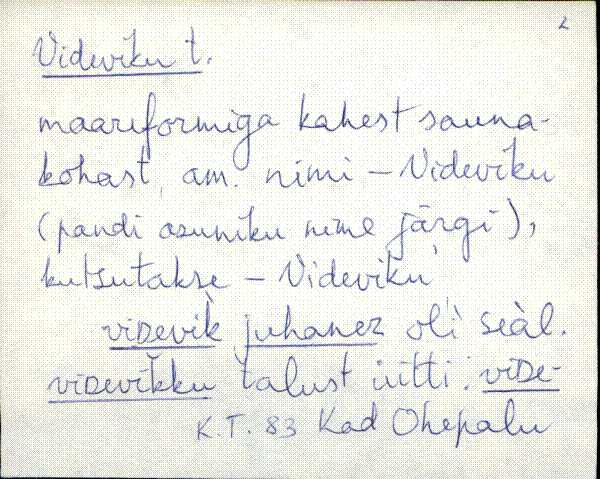 2
Videviku t.
maareformiga kahest sauna-
kohast, am. nimi – Videviku
(pandi asuniku nime järgi),
kutsutakse – Videviku,
viDevìk juhanez olì seàl.
viDevìkku talust üitti: viDe-
K.T. 83 Kad Ohepalu